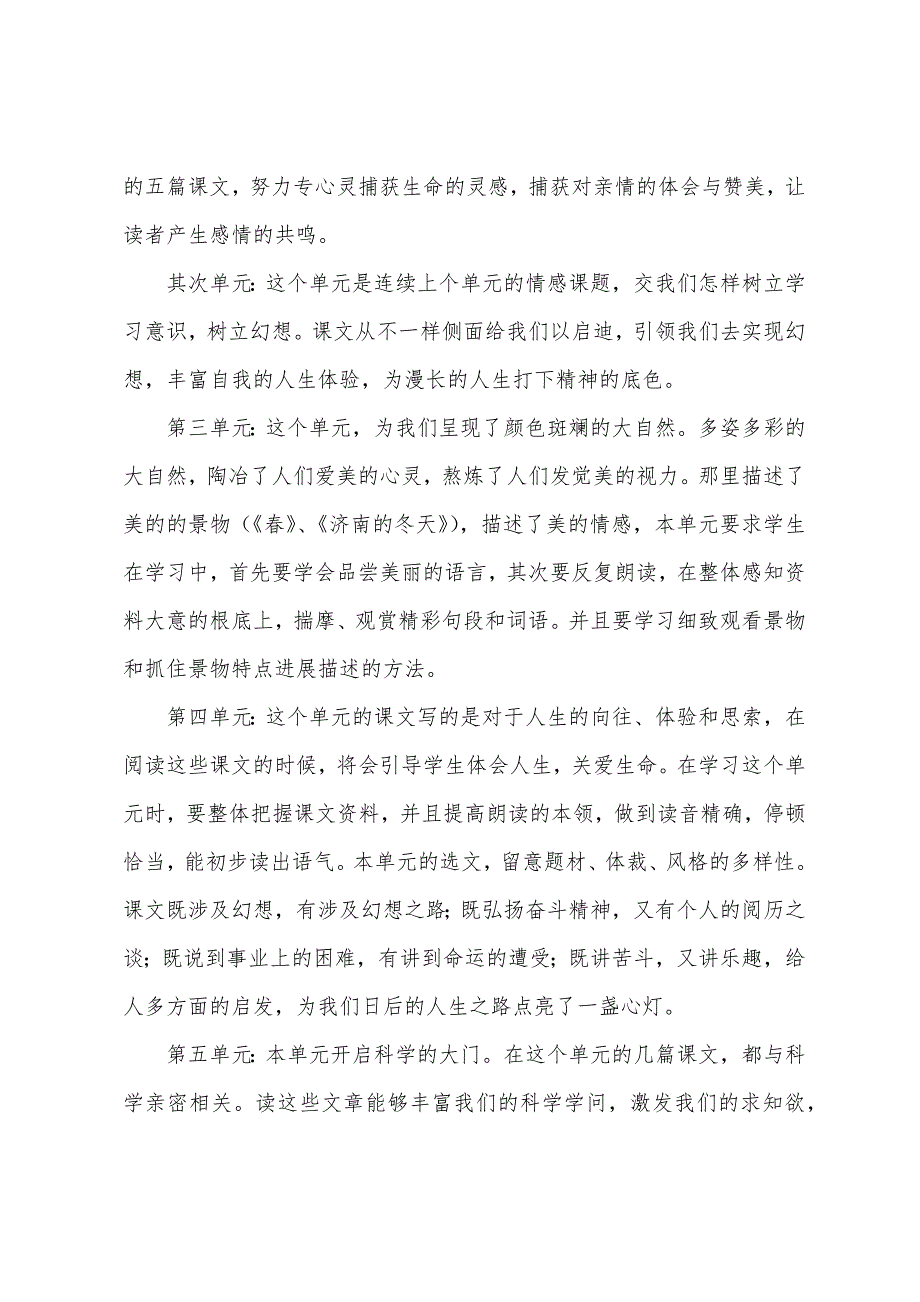 的五篇课文，努力专心灵捕获生命的灵感，捕获对亲情的体会与赞美，让
读者产生感情的共鸣。
其次单元：这个单元是连续上个单元的情感课题，交我们怎样树立学
习意识，树立幻想。课文从不一样侧面给我们以启迪，引领我们去实现幻
想，丰富自我的人生体验，为漫长的人生打下精神的底色。
第三单元：这个单元，为我们呈现了颜色斑斓的大自然。多姿多彩的
大自然，陶冶了人们爱美的心灵，熬炼了人们发觉美的视力。那里描述了
美的的景物（《春》、《济南的冬天》），描述了美的情感，本单元要求学生
在学习中，首先要学会品尝美丽的语言，其次要反复朗读，在整体感知资
料大意的根底上，揣摩、观赏精彩句段和词语。并且要学习细致观看景物
和抓住景物特点进展描述的方法。
第四单元：这个单元的课文写的是对于人生的向往、体验和思索，在
阅读这些课文的时候，将会引导学生体会人生，关爱生命。在学习这个单
元时，要整体把握课文资料，并且提高朗读的本领，做到读音精确，停顿
恰当，能初步读出语气。本单元的选文，留意题材、体裁、风格的多样性。
课文既涉及幻想，有涉及幻想之路；既弘扬奋斗精神，又有个人的阅历之
谈；既说到事业上的困难，有讲到命运的遭受；既讲苦斗，又讲乐趣，给
人多方面的启发，为我们日后的人生之路点亮了一盏心灯。
第五单元：本单元开启科学的大门。在这个单元的几篇课文，都与科
学亲密相关。读这些文章能够丰富我们的科学学问，激发我们的求知欲，